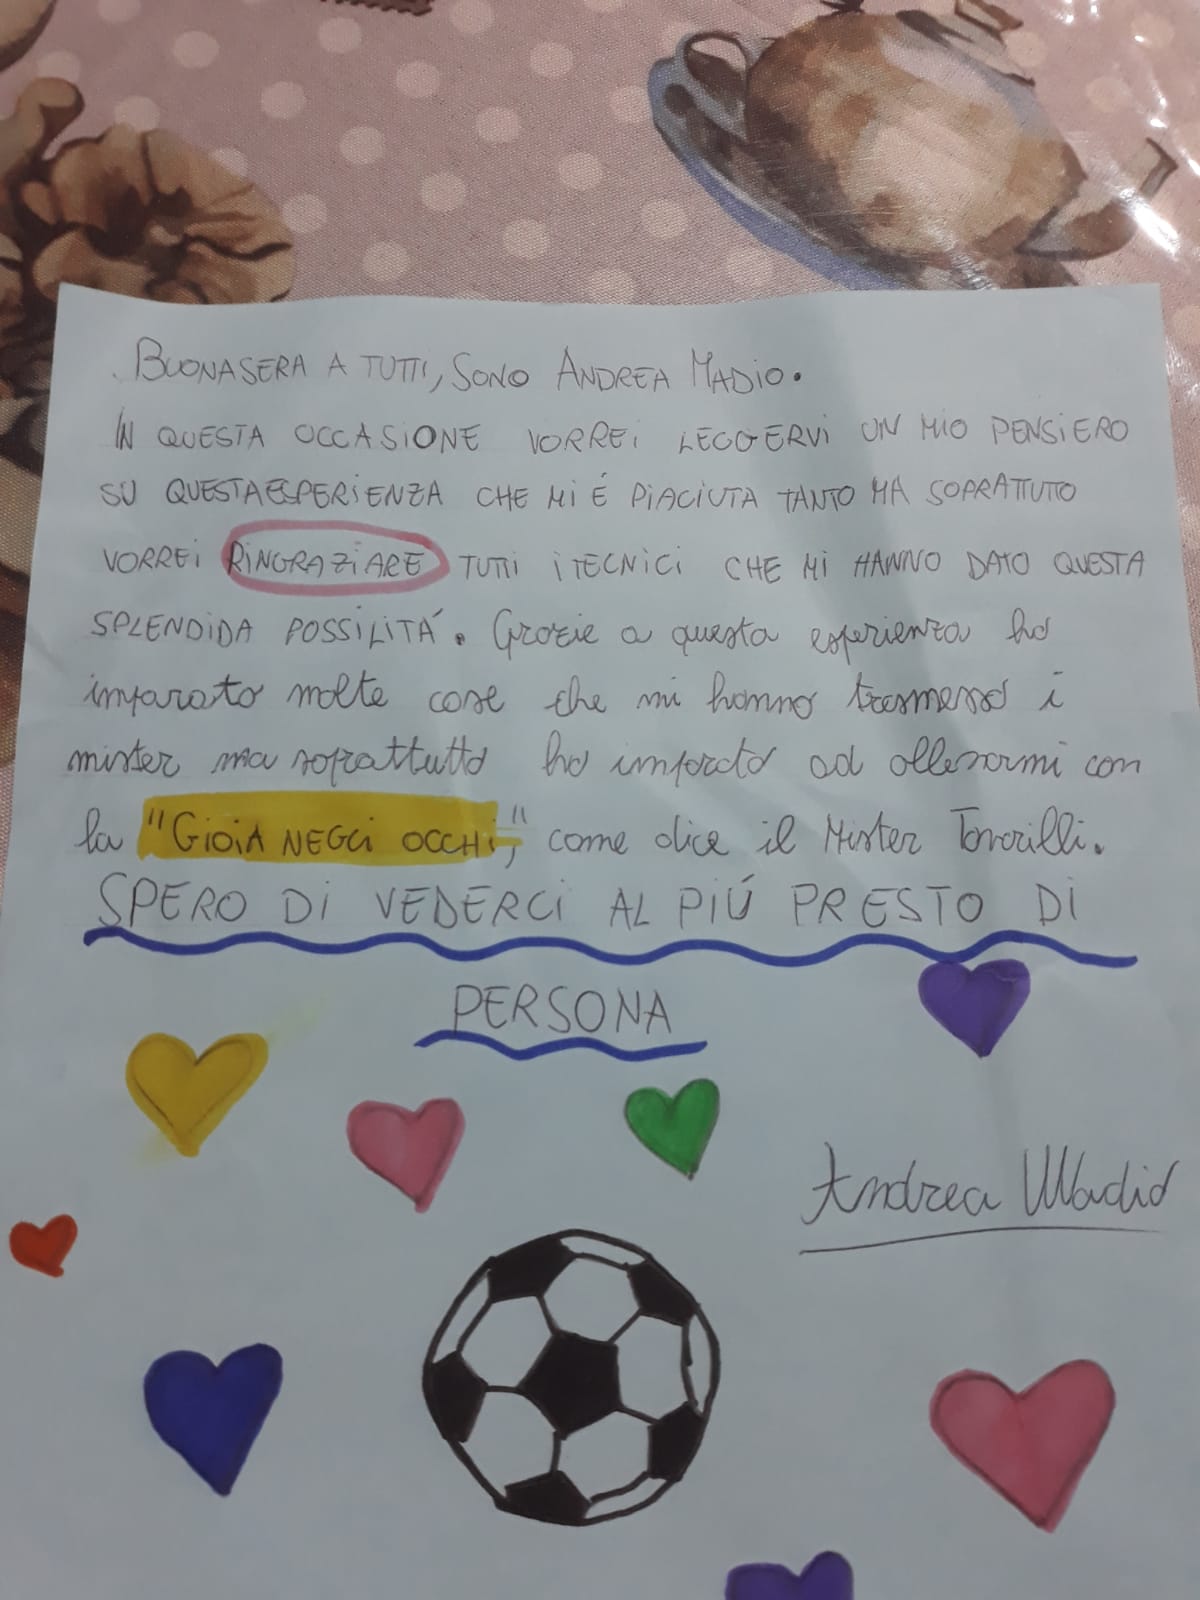 BUONASERA A TUTTI, SONO ANDREA MADIO.
IN QUESTA OCCASIONE VORREI LEGGERVI UN MIO PENSIERO
SU QUESTA ESPERIENZA CHE MI É PIACIUTA TANTO MA SOPRATTUTTO
VORREI RINGRAZIARE TUTTI I TECNICI CHE MI HANNO DATO QUESTA
SPLENDIDA POSSILITÁ. Grazie a questa esperienza ho
imparato molte cose che mi hanno trasmesso i
mister ma soprattutto ho imparato ad allenarmi con
la "GIOIA NEGLI OCCHI", come dice il Mister
SPERO DI VEDERCI AL PIÚ PRESTO DI
PERSONA
Andrea Madio